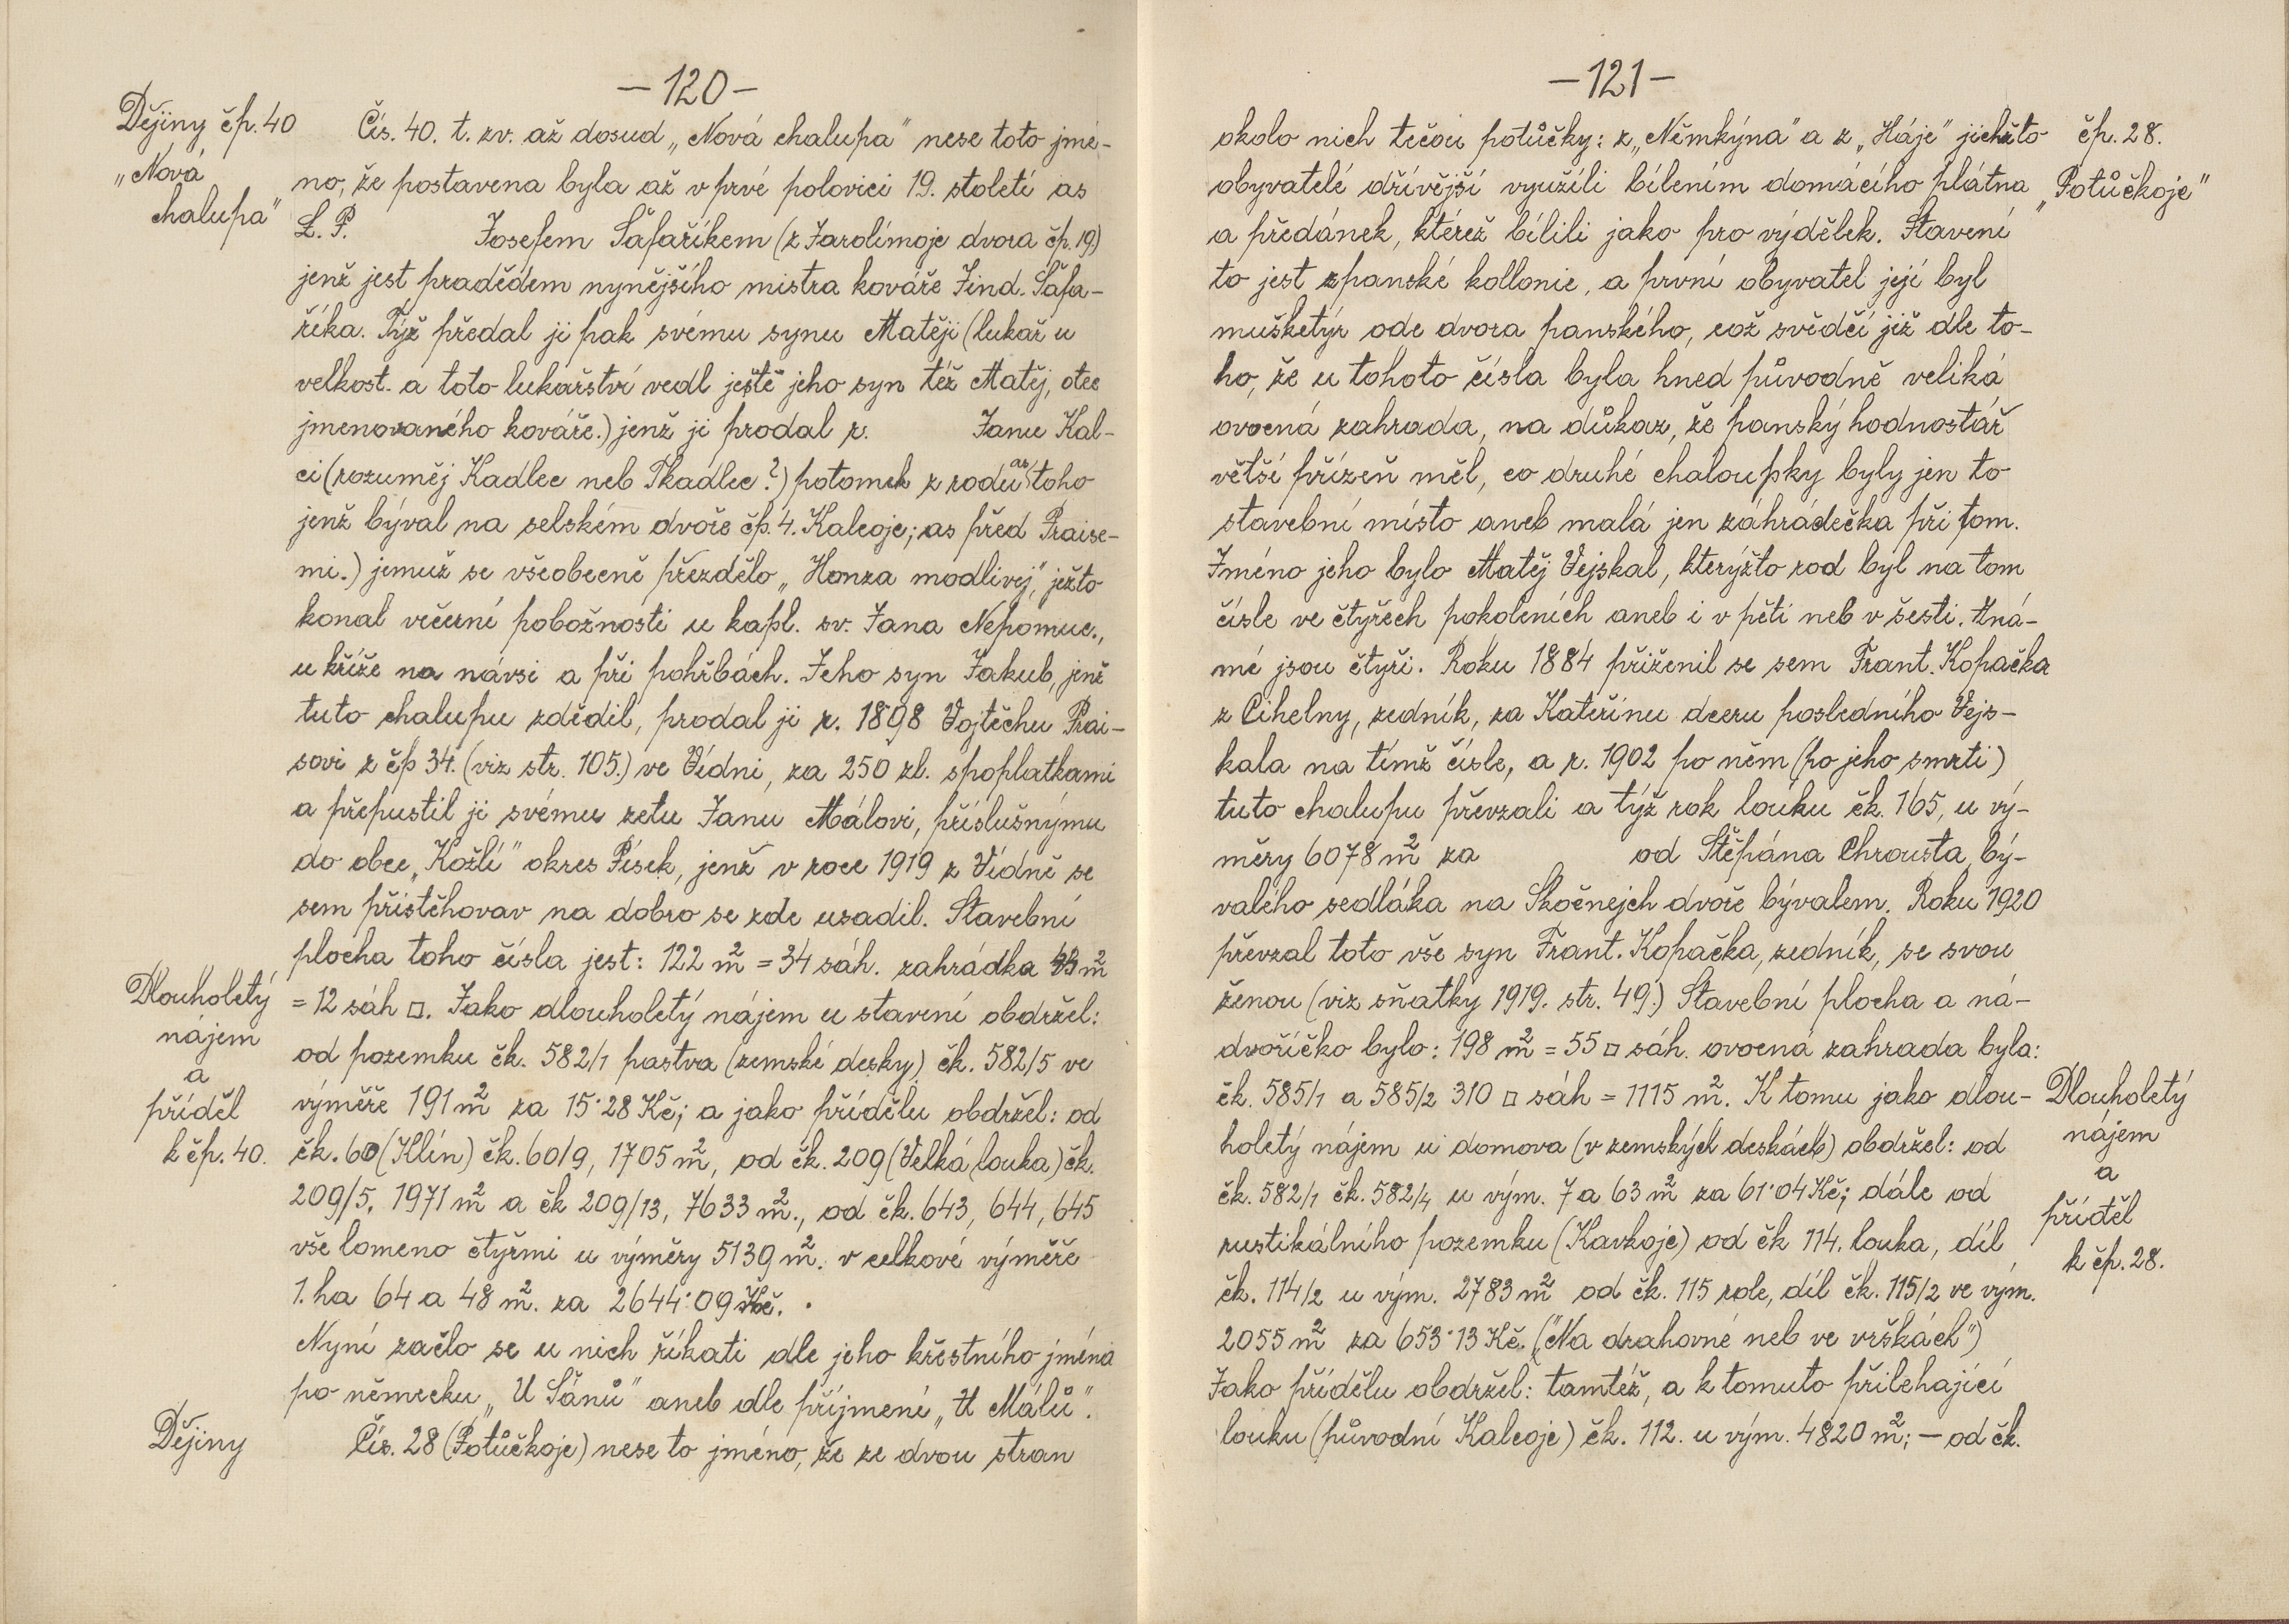 —120—
Dějiny čp. 40
„Nová
chalupa"
Čís. 40. t. zv. až dosud „Nová chalupa" nese toto jmé-
no, že postavena byla až v prvé polovici 19. století as
L. P. Josefem Šafaříkem (z Jarolímoje dvora čp. 19.)
jenž jest pradědem nynějšího mistra kováře Jind. Šafa-
říka. Týž předal ji pak svému synu Matěji (lukař u
velkost. a toto lukařství vedl ještě jeho syn též Matěj, otec
jmenovaného kováře.) jenž ji prodal r. Janu Kal-
ci (rozuměj Kadlec neb Tkadlec?) potomek z rodu as toho
jenž býval na selském dvoře čp. 4. Kalcoje; as před Praise-
mi.) jemuž se všeobecně přezdělo „Honza modlivej", ježto
konal večerní pobožnosti u kapl. sv. Jana Nepomuc.,
u kříže na návsi a při pohřbách. Jeho syn Jakub, jenž
tuto chalupu zdědil, prodal ji r. 1898 Vojtěchu Prai-
sovi z čp 34. (viz str. 105.) ve Vídni, za 250 zl. spoplatkami
a přepustil ji svému zetu Janu Málovi, příslušnýmu
do obce „Kožlí" okres Písek, jenž v roce 1919 z Vídně se
sem přistěhovav na dobro se zde usadil. Stavební
plocha toho čísla jest: 122 m² = 34 sáh. zahrádka 43 m²
= 12 sáh □. Jako dlouholetý nájem u stavení obdržel:
od pozemku čk. 582/1 pastva (zemské desky) čk. 582/5 ve
výměře 191 m² za 15·28 Kč; a jako přídělu obdržel: od
čk. 60 (Klín) čk. 60/9, 1705 m², od čk. 209 (Velká louka) čk.
209/5, 1971 m² a čk 209/13, 7633 m²., od čk. 643, 644, 645
vše lomeno čtyřmi u výměry 5139 m². v celkové výměře
1. ha 64 a 48 m². za 2644·09 Kč.
Nyní začlo se u nich říkati dle jeho křestního jména
po německu „U Šánů" aneb dle příjmení „U Málů".
Čís. 28 (Potůčkoje) nese to jméno, že ze dvou stran
Dlouholetý
nájem
a
příděl
k čp. 40.
Dějiny
—121—
okolo nich tečou potůčky: z „Němkýna" a z „Háje" jichžto
obyvatelé dřívější využíli bílením domácího plátna
a předánek, kteréž bílili jako pro výdělek. Stavení
to jest z panské kollonie, a první obyvatel její byl
mušketýr ode dvora panského, což svědčí již dle to-
ho, že u tohoto čísla byla hned původně veliká
ovocná zahrada, na důkaz, že panský hodnostář
větší přízeň měl, co druhé chaloupky byly jen to
stavební místo aneb malá jen záhrádečka při tom.
Jméno jeho bylo Matěj Vejskal, kterýžto rod byl na tom
čísle ve čtyřech pokoleních aneb i v pěti neb v šesti. Zná-
mé jsou čtyři. Roku 1884 přiženil se sem Frant. Kopačka
z Cihelny, zedník, za Kateřinu dceru posledního Vejs-
kala na tímž čísle, a r. 1902 po něm (po jeho smrti)
tuto chalupu převzali a týž rok louku čk. 165, u vý-
měry 6078 m² za od Štěpána Chrousta, bý-
valého sedláka na Skočnejch dvoře bývalem. Roku 1920
převzal toto vše syn Frant. Kopačka, zedník, se svou
ženou (viz sňatky 1919. str. 49.) Stavební plocha a ná-
dvoříčko bylo: 198 m² = 55 □ sáh. ovocná zahrada byla:
čk. 585/1 a 585/2 310 □ sáh = 1115 m². K tomu jako dlou-
holetý nájem u domova (v zemských deskách) obdržel: od
čk. 582/1 čk. 582/4 u vým. 7 a 63 m² za 61·04 Kč; dále od
rustikálního pozemku (Kavkoje) od čk 114. louka, díl
čk. 114/2 u vým. 2783 m² od čk. 115 role, díl čk. 115/2 ve vým.
2055 m² za 653·13 Kč. („Na drahovné neb ve vrškách")
Jako přídělu obdržel: tamtéž, a k tomuto přilehající
louku (původní Kalcoje) čk. 112. u vým. 4820 m²; — od čk.
čp. 28.
„Potůčkoje"
Dlouholetý
nájem
a
příděl
k čp. 28.